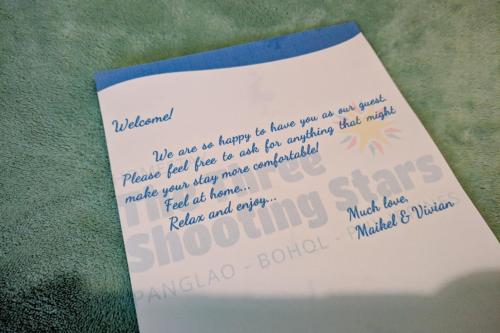 Welcome!
We are so happy to have you as our guest.
Please feel free to ask for anything that might
make your stay more comfortable!
Feel at home...
Relax and enjoy...
Much love,
Maikel & Vivian
The Three
Shooting Stars
PANGLAO - BOHOL -